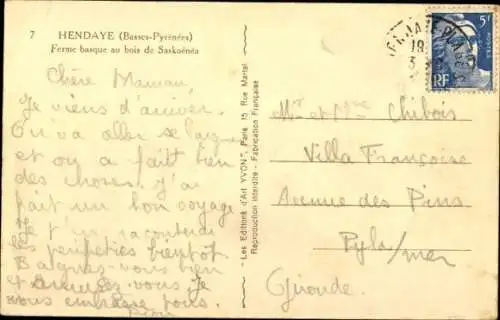 7 HENDAYE (Basses-Pyrénées)
Ferme basque au bois de Saskoénéa
Chère Maman,
Je viens d'arriver.
On va aller se baigner
et on a fait bien
des choses. J'ai
fait un bon voyage
Je t'en raconterai
les péripéties bientôt
Baignez-vous bien
et amusez-vous Je
vous embrasse tous.
- Les Editions d'Art YVON, Paris 15 Rue Martel
Reproduction Interdite - Fabrication Française
HENDAYE PLAGE
18
5F
POSTES
RF
Mr et Mme Chibois
Villa Françoise
Avenue des Pins
Pyla/mer
Gironde.